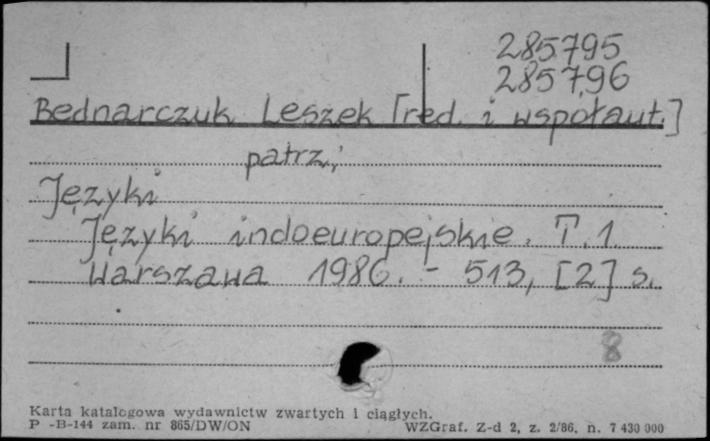 285795
285796
Bednarczuk Leszek [red. i współaut.]
patrz:
Języki
Języki indoeuropejskie. T. 1.
Warszawa 1986. - 513, [2] s.
8
Karta katalogowa wydawnictw zwartych i ciągłych.
P -B-144 zam. nr 865/DW/ON WZGraf. Z-d 2, z. 2/86, n. 7 430 000